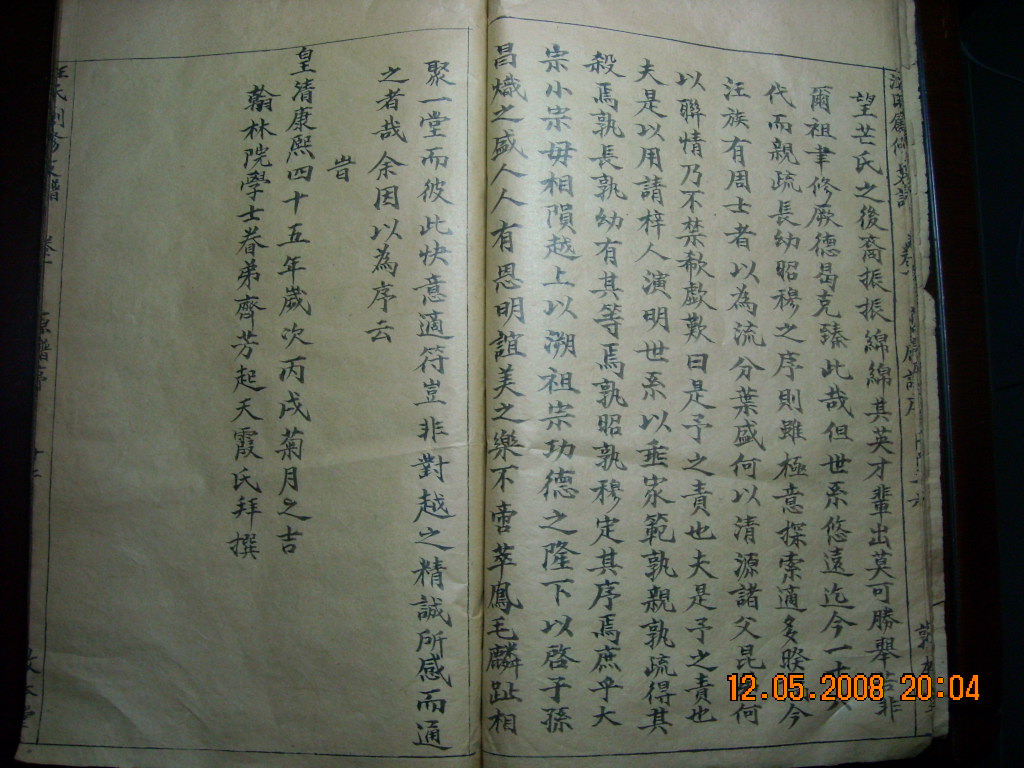 望芒氏之後裔振振綿綿其英才輩出莫可勝舉苦非
爾祖聿修厥德曷克臻此哉但世系悠遠迄今一十
代而親疏長幼昭穆之序則雖極意探索適多睽今
汪族有周士者以為流分葉盛何以清源諸父昆何
以聯情乃不禁欷歔歎曰是予之責也夫是予之責也
夫是以用請梓人演明世系以垂家範孰親孰疏得其
殺焉孰長孰幼有其等焉孰昭孰穆定其序焉庶乎大
宗小宗毋相隕越上以溯祖宗功德之隆下以啓子孫
昌熾之盛人人有恩明誼美之樂不啻萃鳳毛麟趾相
聚一堂而彼此快意適符豈非對越之精誠所感而通
之者哉余因以為序云
旹
皇清康熙四十五年歲次丙戌菊月之吉
翰林院學士眷弟齊芳起天霞氏拜撰
12.05.2008 20:04